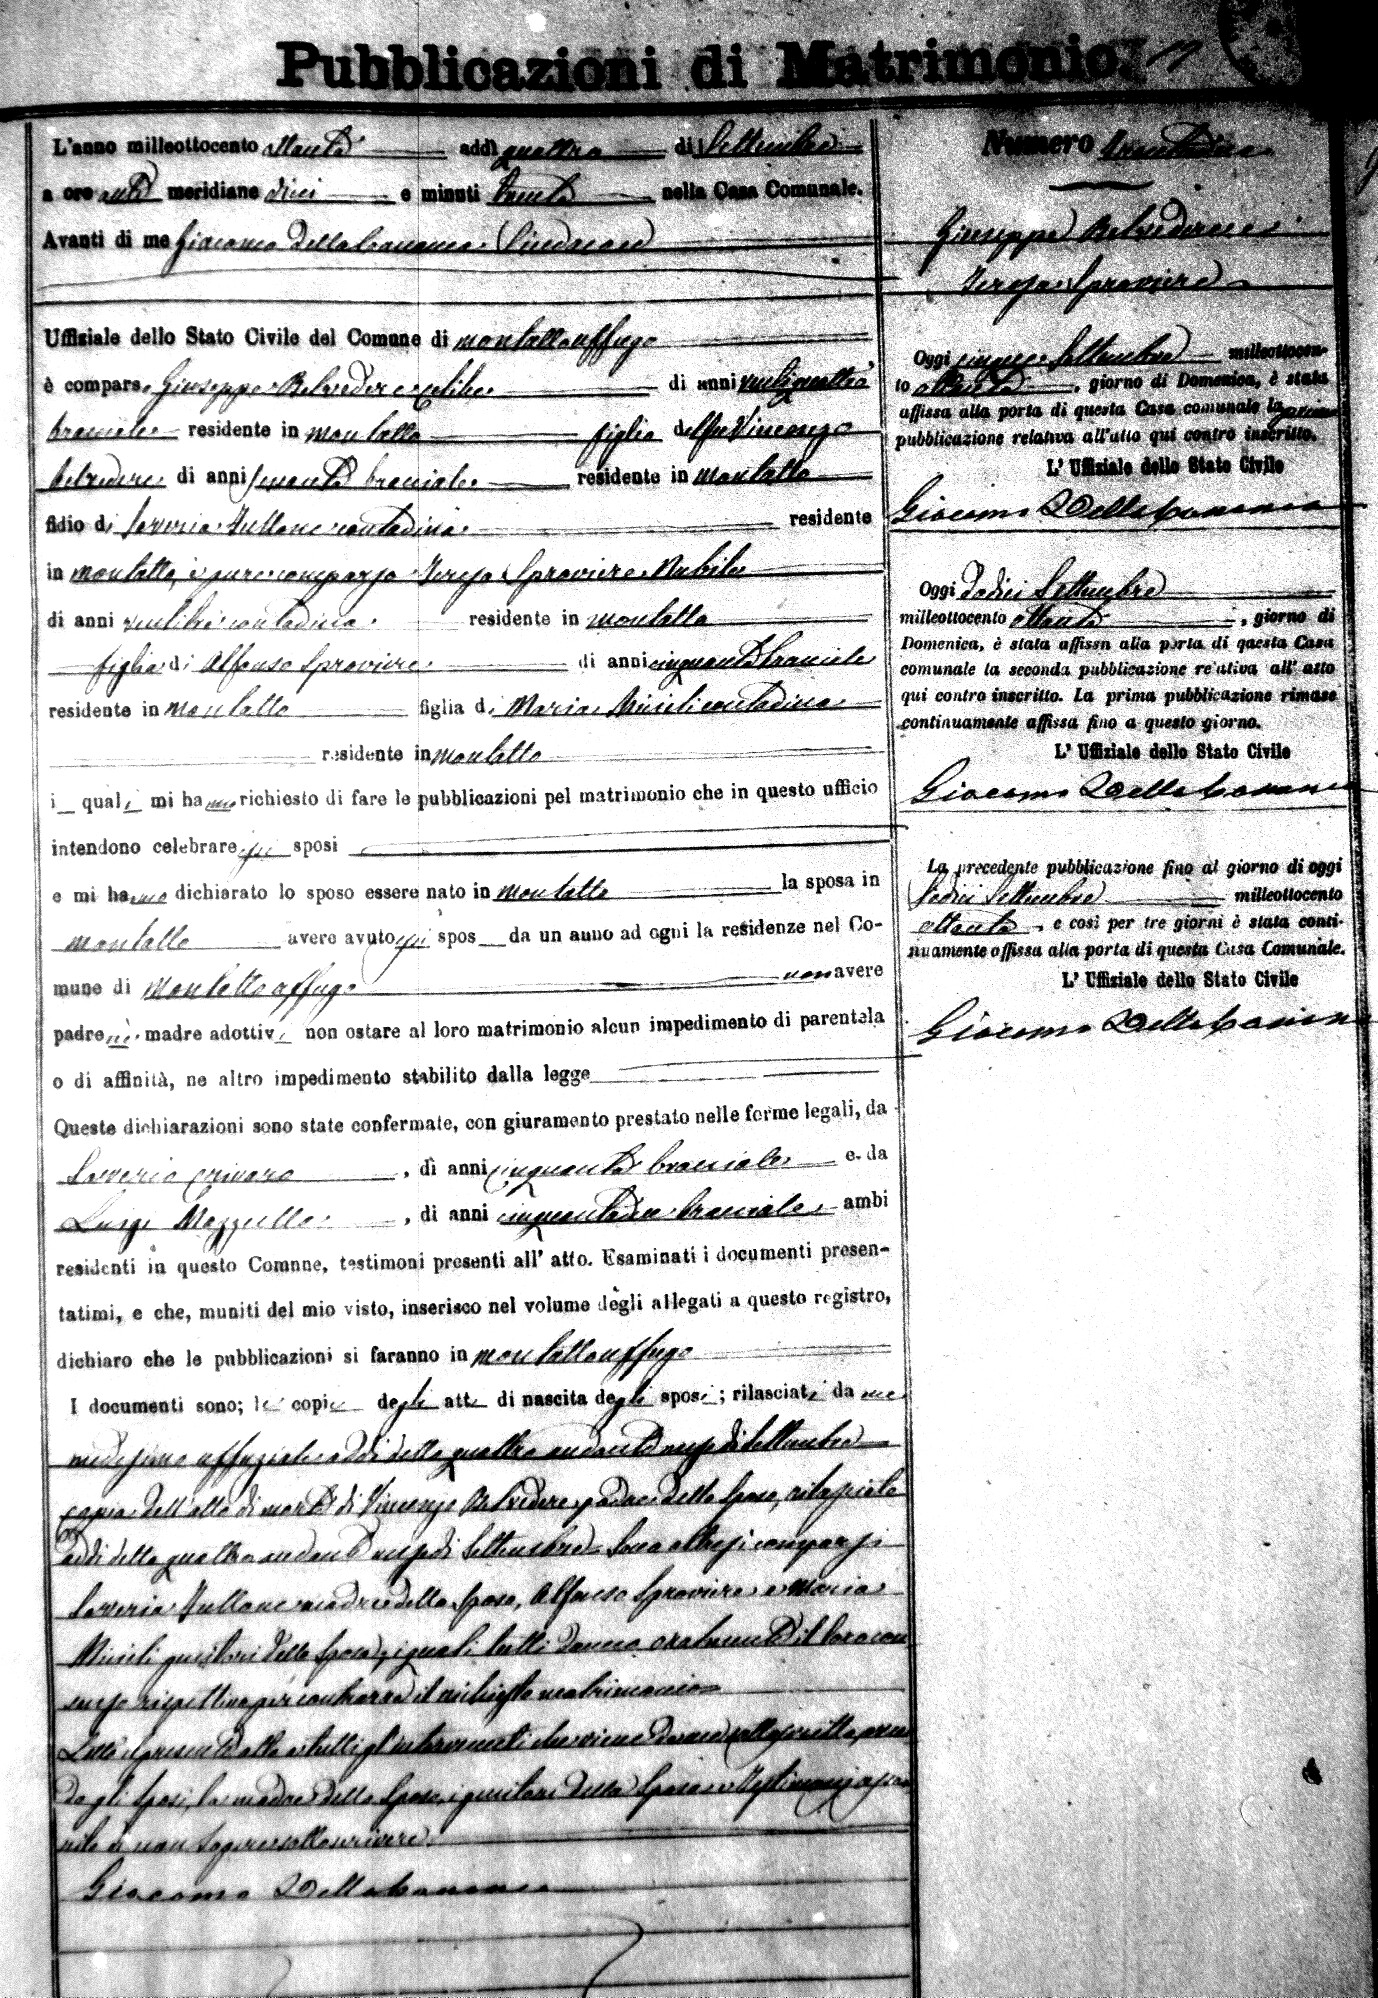 Pubblicazioni di Matrimonio.
L'anno milleottocento ottanta addì quattro di Settembre
a ore anti meridiane dieci e minuti trenta nella Casa Comunale.
Avanti di me Giacomo Dellacananea Sindaco
Uffiziale dello Stato Civile del Comune di Montalto uffugo
è comparso Giuseppe Belvedere celibe di anni ventiquattro
bracciale residente in Montalto figlio del fu Vincenzo
Belvedere di anni sessanta bracciale residente in Montalto
fidio di Saveria Tullane contadina residente
in Montalto, è pure comparsa Teresa Sproviere Nubile
di anni ventitre contadina residente in Montalto
figlia di Alfonso Sproviere di anni cinquanta bracciale
residente in Montalto figlia di Maria Miceli contadina
residente in Montalto
i quali mi hanno richiesto di fare le pubblicazioni pel matrimonio che in questo ufficio
intendono celebrare gli sposi
e mi hanno dichiarato lo sposo essere nato in Montalto la sposa in
Montalto avere avuto gli spos da un anno ad ogni la residenze nel Co-
mune di Montalto uffugo non avere
padre nè madre adottivi non ostare al loro matrimonio alcun impedimento di parentela
o di affinità, ne altro impedimento stabilito dalla legge
Queste dichiarazioni sono state confermate, con giuramento prestato nelle forme legali, da
Saverio Crivaro, di anni cinquanta bracciale e da
Luigi Mazzullo, di anni cinquantadue bracciale ambi
residenti in questo Comnne, testimoni presenti all' atto. Esaminati i documenti presen-
tatimi, e che, muniti del mio visto, inserisco nel volume degli allegati a questo registro,
dichiaro che le pubblicazioni si faranno in Montalto uffugo
I documenti sono; le copie degli atti di nascita degli sposi; rilasciati da me
medesimo uffiziale addì detto quattro andante mese di Settembre
copia dell'atto di morte di Vincenzo Belvedere padre dello sposo, rilasciato
addì detto quattro andante mese di Settembre. Sono altresì comparsi
Saveria Tullane madre dello sposo, Alfonso Sproviere e Maria
Miceli genitori della sposa, i quali tutti danno oralmente il loro con
senso rispettivo per contrarre il richiesto matrimonio
Letto il presente atto a tutti gl'intervenuti che viene da me sottoscritto, meno
dagli sposi, la madre dello sposo, i genitori della sposa e Testimoni
di non sapere sottoscrivere
Giacomo Dellacananea
Numero
Giuseppe Belvedere e
Teresa Sproviere
Oggi cinque Settembre milleottocen-
to ottanta, giorno di Domenica, è stata
affissa alla porta di questa Casa comunale la prima
pubblicazione relativa all'atto qui contro inscritto.
L' Uffiziale dello Stato Civile
Giacomo Dellacananea
Oggi dodici Settembre
milleottocento ottanta, giorno di
Domenica, è stata affissa alla porta di questa Casa
comunale la seconda pubblicazione relativa all' atto
qui contro inscritto. La prima pubblicazione rimase
continuamente affissa fino a questo giorno.
L' Uffiziale dello Stato Civile
Giacomo Dellacananea
La precedente pubblicazione fino al giorno di oggi
Sedici Settembre milleottocento
ottanta, e così per tre giorni è stata conti-
nuamente affissa alla porta di questa Casa Comunale.
L' Uffiziale dello Stato Civile
Giacomo Dellacananea